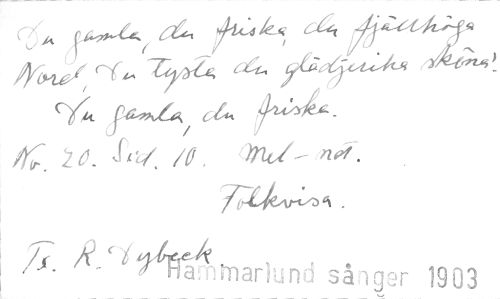 Du gamla, du friska, du fjällhöga
Nord, Du tysta du glädjerika sköna!
Du gamla, du friska.
No. 20. Sid. 10. Mel-not.
Folkvisa.
Tr. R. Dybeck.
Hammarlund sånger 1903